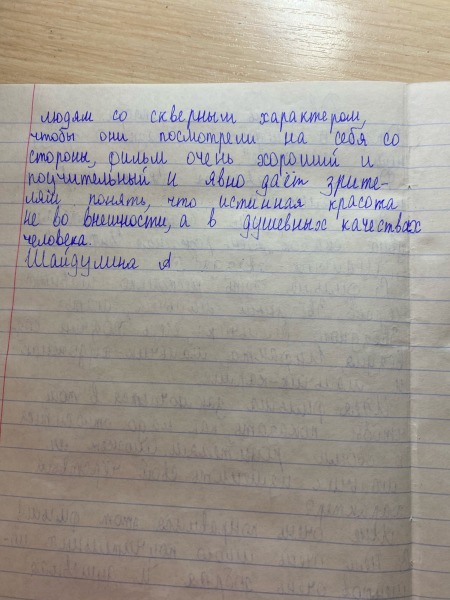 людям со скверным характером,
чтобы они посмотрели на себя со
стороны, фильм очень хороший и
поучительный и явно даёт зрите-
лям понять, что истинная красота
не во внешности, а в душевных качествах
человека.
Шайдулина А